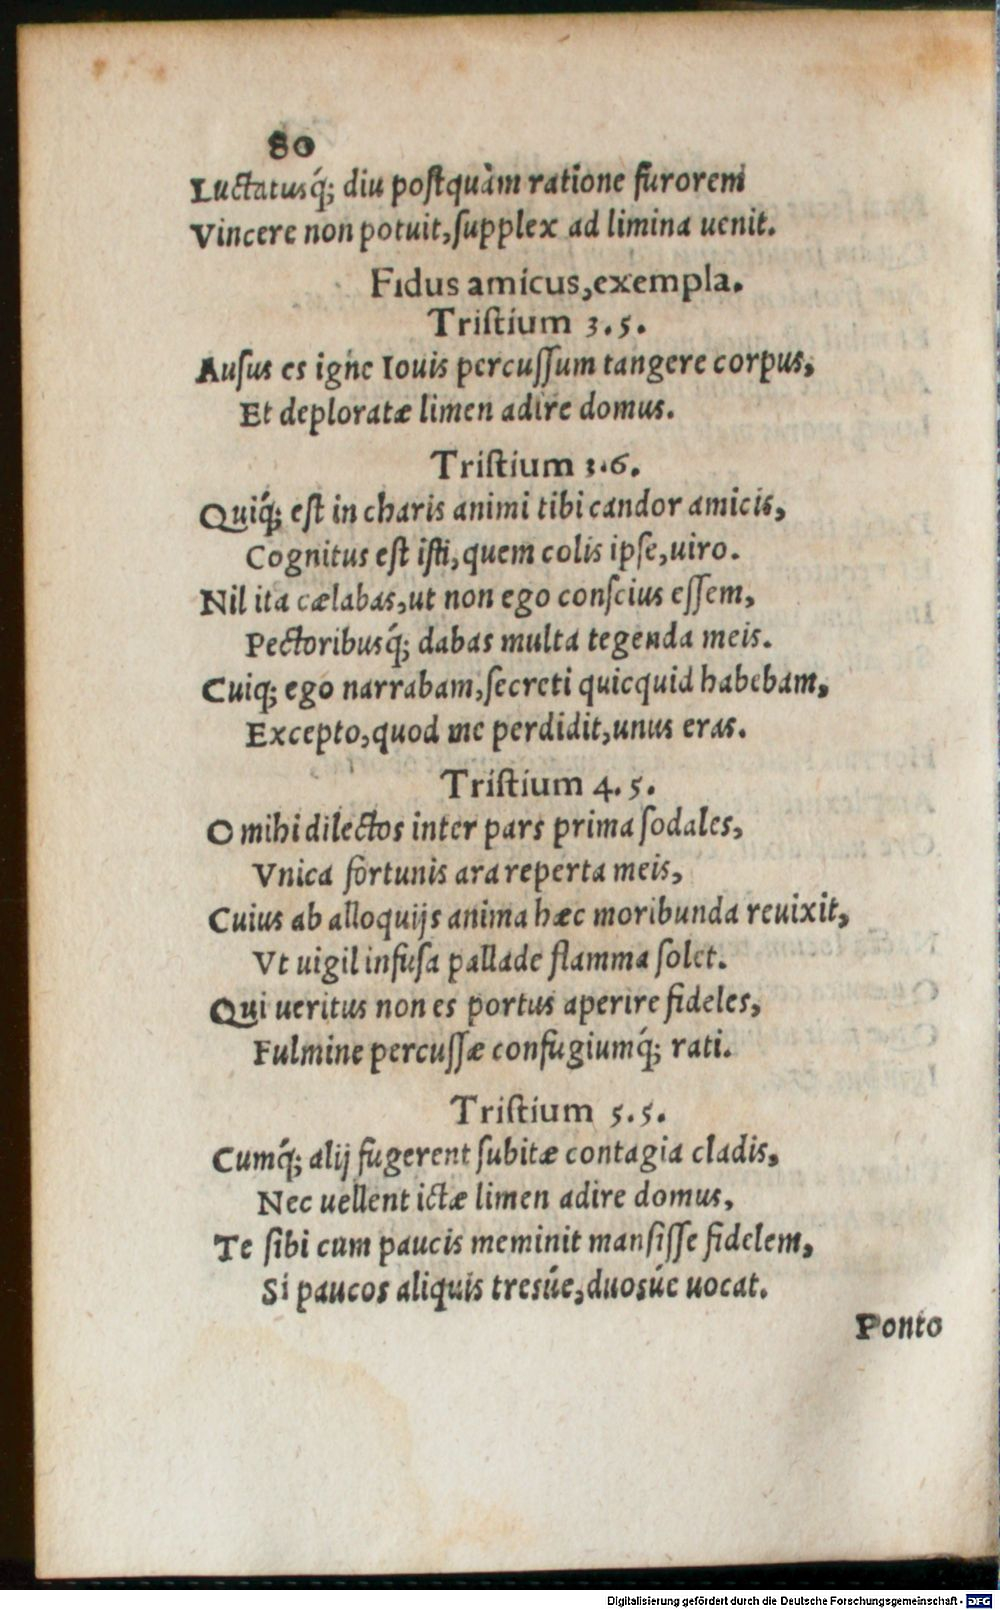 80
Luctatusq́; diu poſtquàm ratione furorem
Vincere non potuit, ſupplex ad limina uenit.
Fidus amicus, exempla.
Triſtium 3.5.
Auſus es igne Iouis percuſſum tangere corpus,
Et deploratæ limen adire domus.
Triſtium 3.6.
Quiq́; eſt in charis animi tibi candor amicis,
Cognitus eſt iſti, quem colis ipſe, uiro.
Nil ita cælabas, ut non ego conſcius eſſem,
Pectoribusq́; dabas multa tegenda meis.
Cuiq; ego narrabam, ſecreti quicquid habebam,
Excepto, quod me perdidit, unus eras.
Triſtium 4.5.
O mihi dilectos inter pars prima ſodales,
Vnica fortunis ara reperta meis,
Cuius ab alloquijs anima hæc moribunda reuixit,
Vt uigil infuſa pallade flamma ſolet.
Qui ueritus non es portus aperire fideles,
Fulmine percuſſæ confugiumq́; rati.
Triſtium 5.5.
Cumq́; alij fugerent ſubitæ contagia cladis,
Nec uellent ictæ limen adire domus,
Te ſibi cum paucis meminit manſiſſe fidelem,
Si paucos aliquis tresúe, duosúe uocat.
Ponto
Digitalisierung gefördert durch die Deutsche Forschungsgemeinschaft - DFG